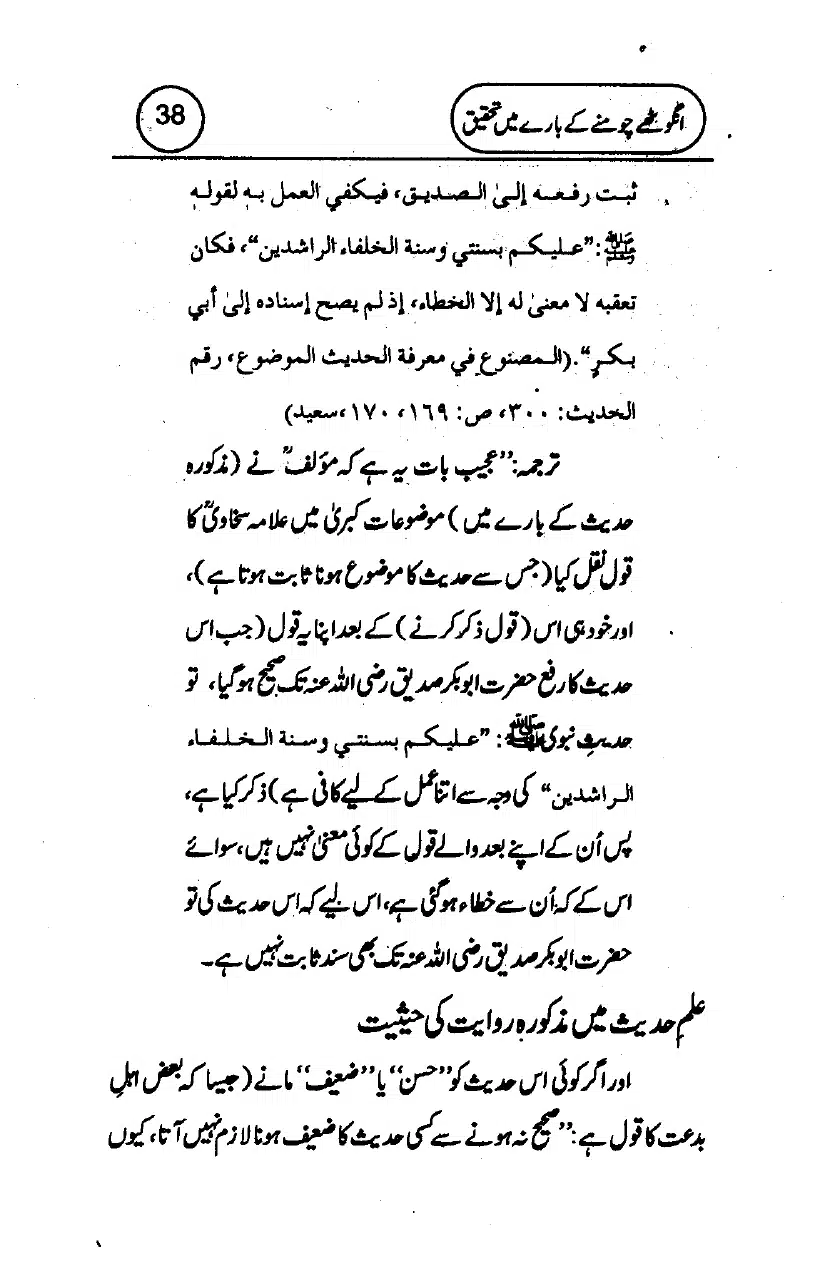 انگوٹھے چومنے کے بارے میں تحقیق
38
ثبت رفعه إلىٰ الصديق، فيكفي العمل به لقولهٖ
ﷺ:”عليكم بسنتي وسنة الخلفاء الراشدين“، فكان
تعقبه لا معنىٰ له إلا الخطاء، إذ لم يصح إسناده إلىٰ أبي
بكرٍ“.(المصنوع في معرفة الحديث الموضوع، رقم
الحديث: ٣٠٠، ص: ١٦٩، ١٧٠،سعيد)
ترجمہ:”عجیب بات یہ ہے کہ مؤلفؒ نے (مذکورہ
حدیث کے بارے میں) موضوعات کبریٰ میں علامہ سخاویؒ کا
قول نقل کیا(جس سے حدیث کا موضوع ہونا ثابت ہوتا ہے)،
اور خود ہی اس (قول ذکر کرنے) کے بعد اپنا یہ قول (جب اس
حدیث کا رفع حضرت ابوبکر صدیق رضی اللہ عنہ تک صحیح ہوگیا، تو
حدیثِ نبوی ﷺ: ”عليكم بسنتي وسنة الخلفاء
الراشدين“ کی وجہ سے اتنا عمل کے لیے کافی ہے)ذکر کیا ہے،
پس اُن کے اپنے بعد والے قول کے کوئی معنیٰ نہیں ہیں،سوائے
اس کے کہ اُن سے خطاء ہوگئی ہے،اس لیے کہ اس حدیث کی تو
حضرت ابوبکر صدیق رضی اللہ عنہ تک بھی سند ثابت نہیں ہے۔
علمِ حدیث میں مذکورہ روایت کی حیثیت
اور اگر کوئی اس حدیث کو”حسن“ یا”ضعیف“ مانے (جیسا کہ بعض اہلِ
بدعت کا قول ہے:”صحیح نہ ہونے سے کسی حدیث کا ضعیف ہونا لازم نہیں آتا، کیوں